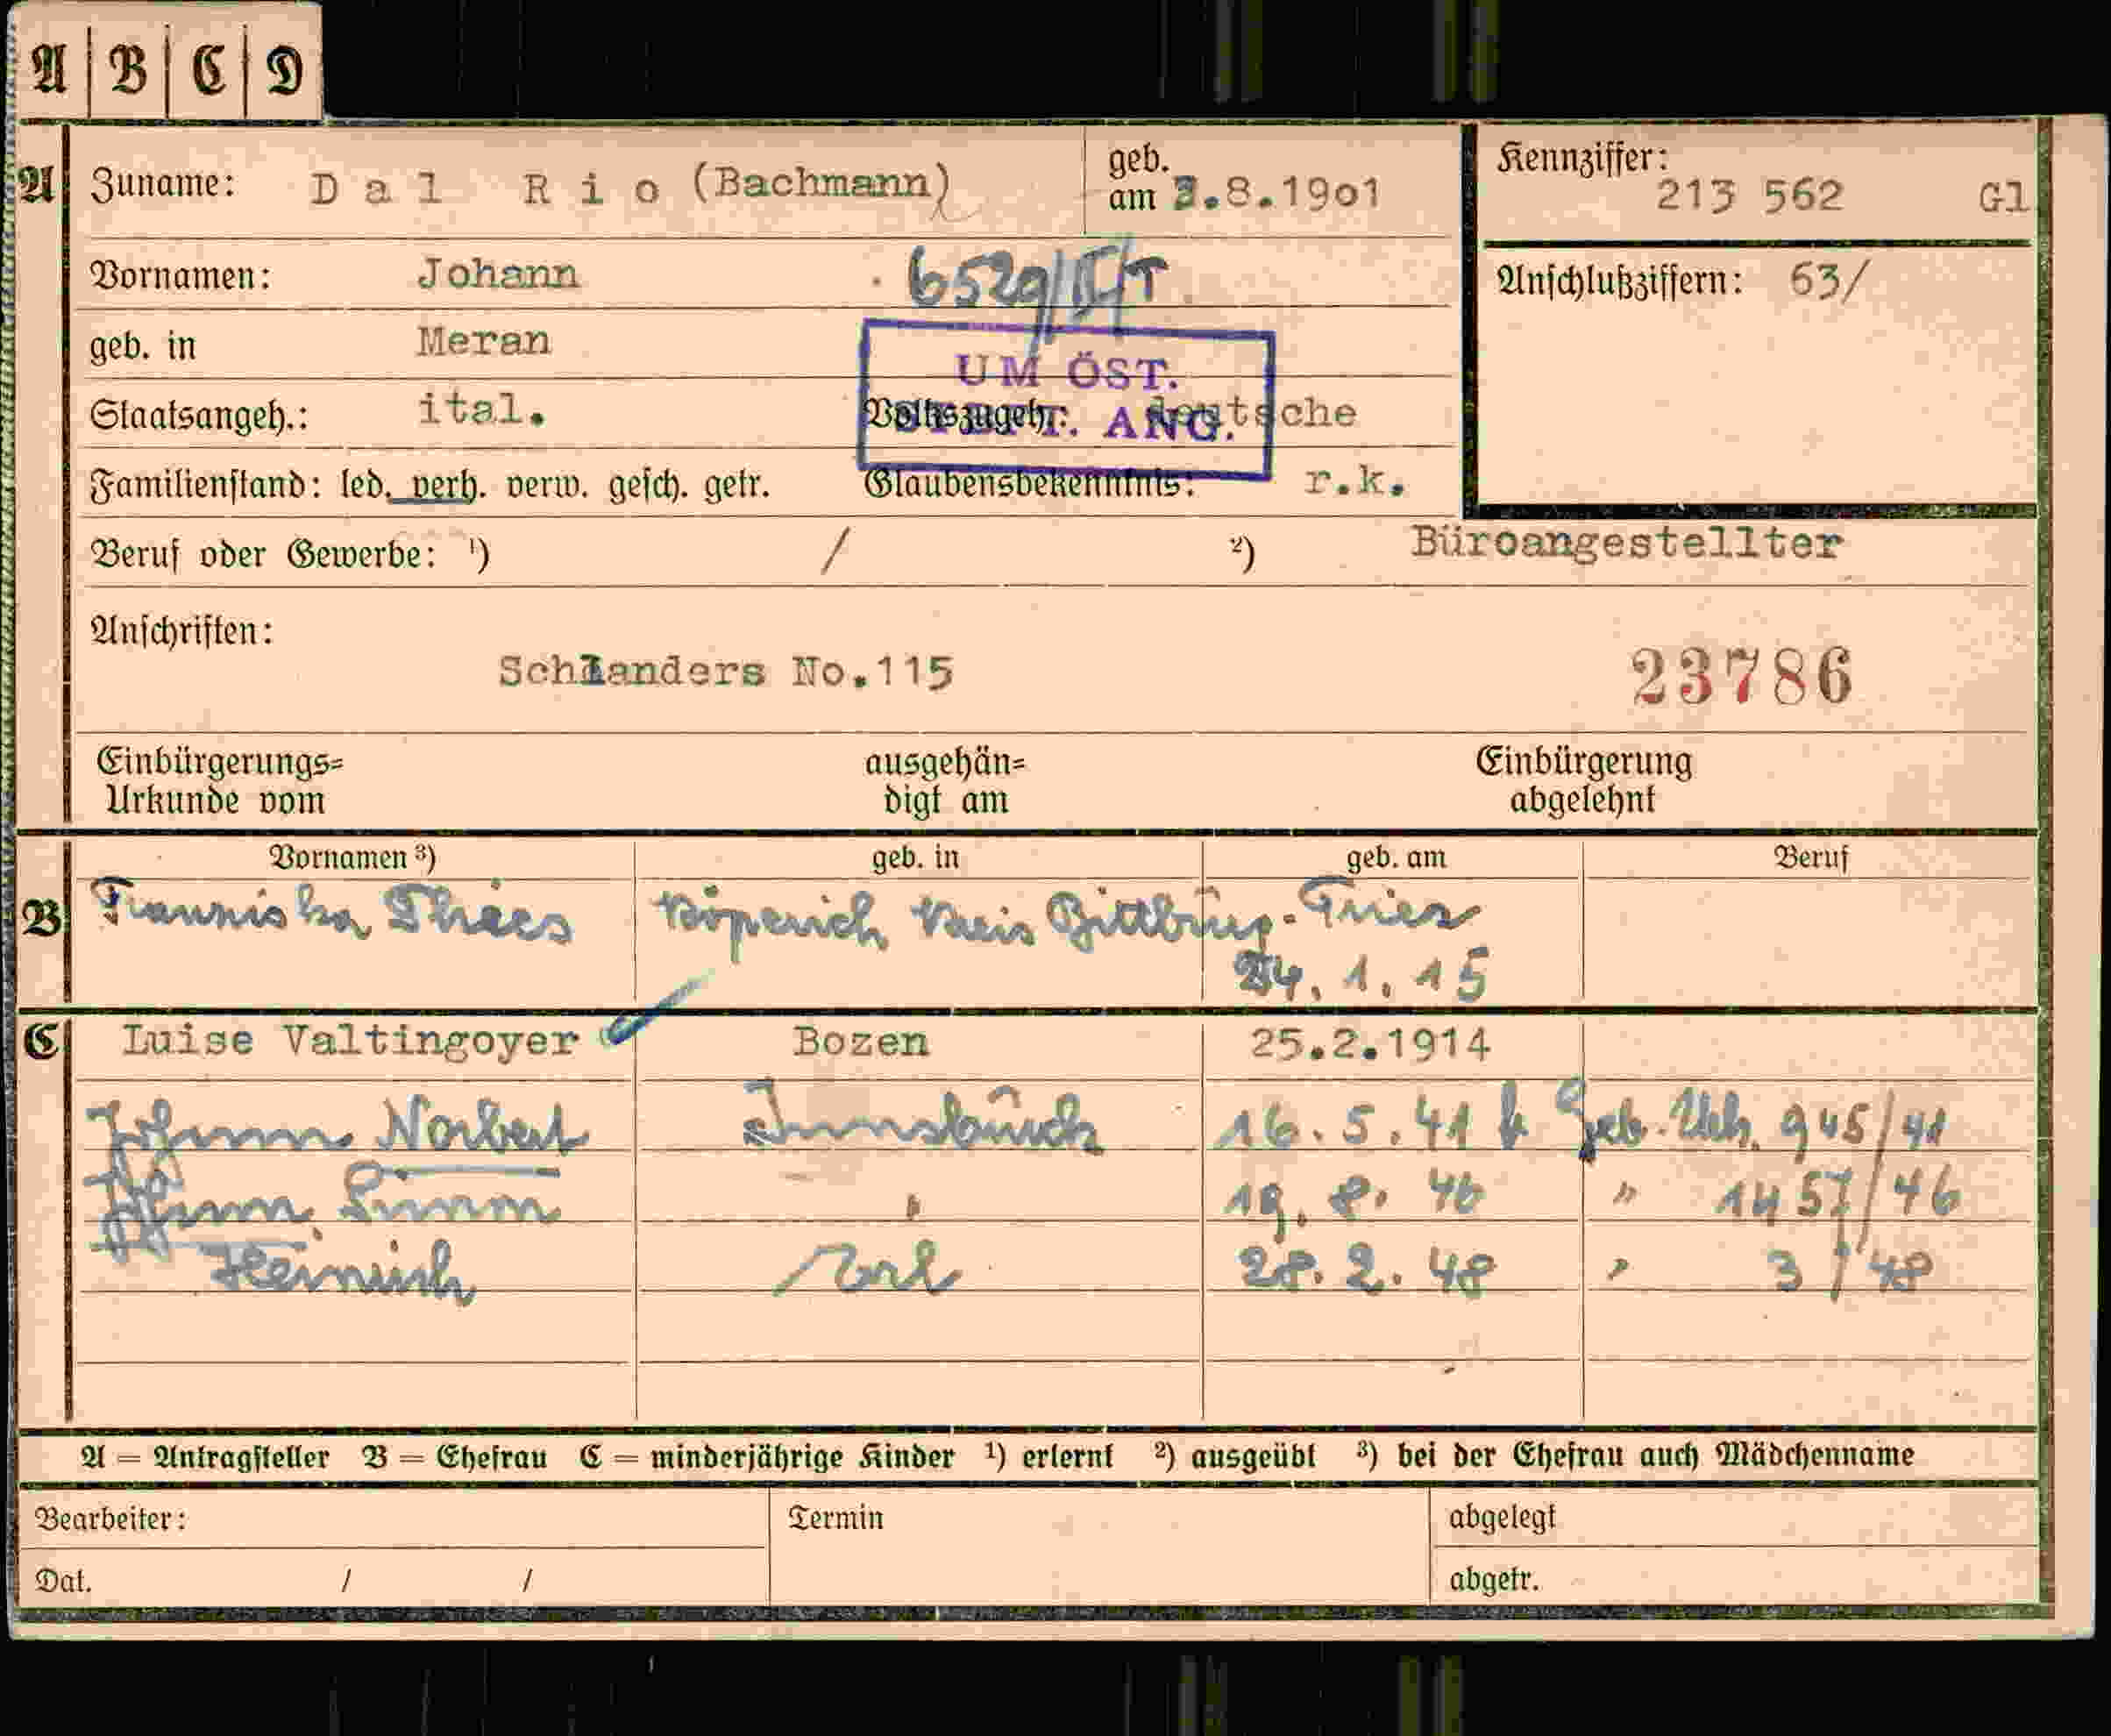 A | B | C | D
A Zuname: Dal Rio (Bachmann) geb. am 3.8.1901 Kennziffer: 213 562 Gl
Vornamen: Johann 6529/II/T Anschlußziffern: 63/
geb. in Meran
UM ÖST.
Staatsangeh.: ital. Volkszugeh.: deutsche
ANG.
Familienstand: led. verh. verw. gesch. getr. Glaubensbekenntnis: r.k.
Beruf oder Gewerbe: ¹) / ²) Büroangestellter
Anschriften:
Schlanders No.115 23786
Einbürgerungs= ausgehän= Einbürgerung
Urkunde vom digt am abgelehnt
Vornamen ³) geb. in geb. am Beruf
B Franziska Kreis Bittburg-Trier
24. 1. 15
C Luise Valtingoyer Bozen 25.2.1914
Johann Norbert Innsbruck 16. 5. 41 Geb. Urk. 945/41
Johann " 19. 8. 46 " 1457/46
Heinrich 28. 2. 48 " 3/48
A = Antragsteller B = Ehefrau C = minderjährige Kinder ¹) erlernt ²) ausgeübt ³) bei der Ehefrau auch Mädchenname
Bearbeiter: Termin abgelegt
Dat. / / abgetr.